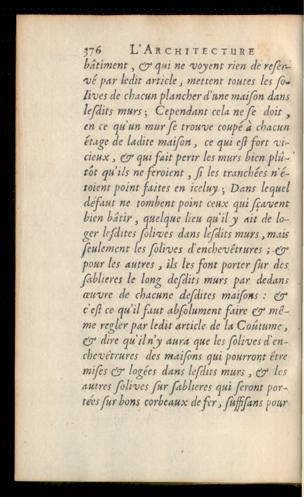 376 L'ARCHITECTURE
bâtiment, & qui ne voyent rien de reser-
vé par ledit article, mettent toutes les so-
lives de chacun plancher d'une maison dans
lesdits murs; Cependant cela ne se doit,
en ce qu'un mur se trouve coupé à chacun
étage de ladite maison, ce qui est fort vi-
cieux, & qui fait perir les murs bien plû-
tôt qu'ils ne feroient, si les tranchées n'é-
toient point faites en iceluy; Dans lequel
défaut ne tombent point ceux qui sçavent
bien bâtir, quelque lieu qu'il y ait de lo-
ger lesdites solives dans lesdits murs, mais
seulement les solives d'enchevêtrures; &
pour les autres, ils les font porter sur des
sablieres le long desdits murs par dedans
œuvre de chacune desdites maisons: &
c'est ce qu'il faut absolument faire & mê-
me regler par ledit article de la Coûtume,
& dire qu'il n'y aura que les solives d'en-
chevêtrures des maisons qui pourront être
mises & logées dans lesdits murs, & les
autres solives sur sablieres qui seront por-
tées sur bons corbeaux de fer, suffisans pour